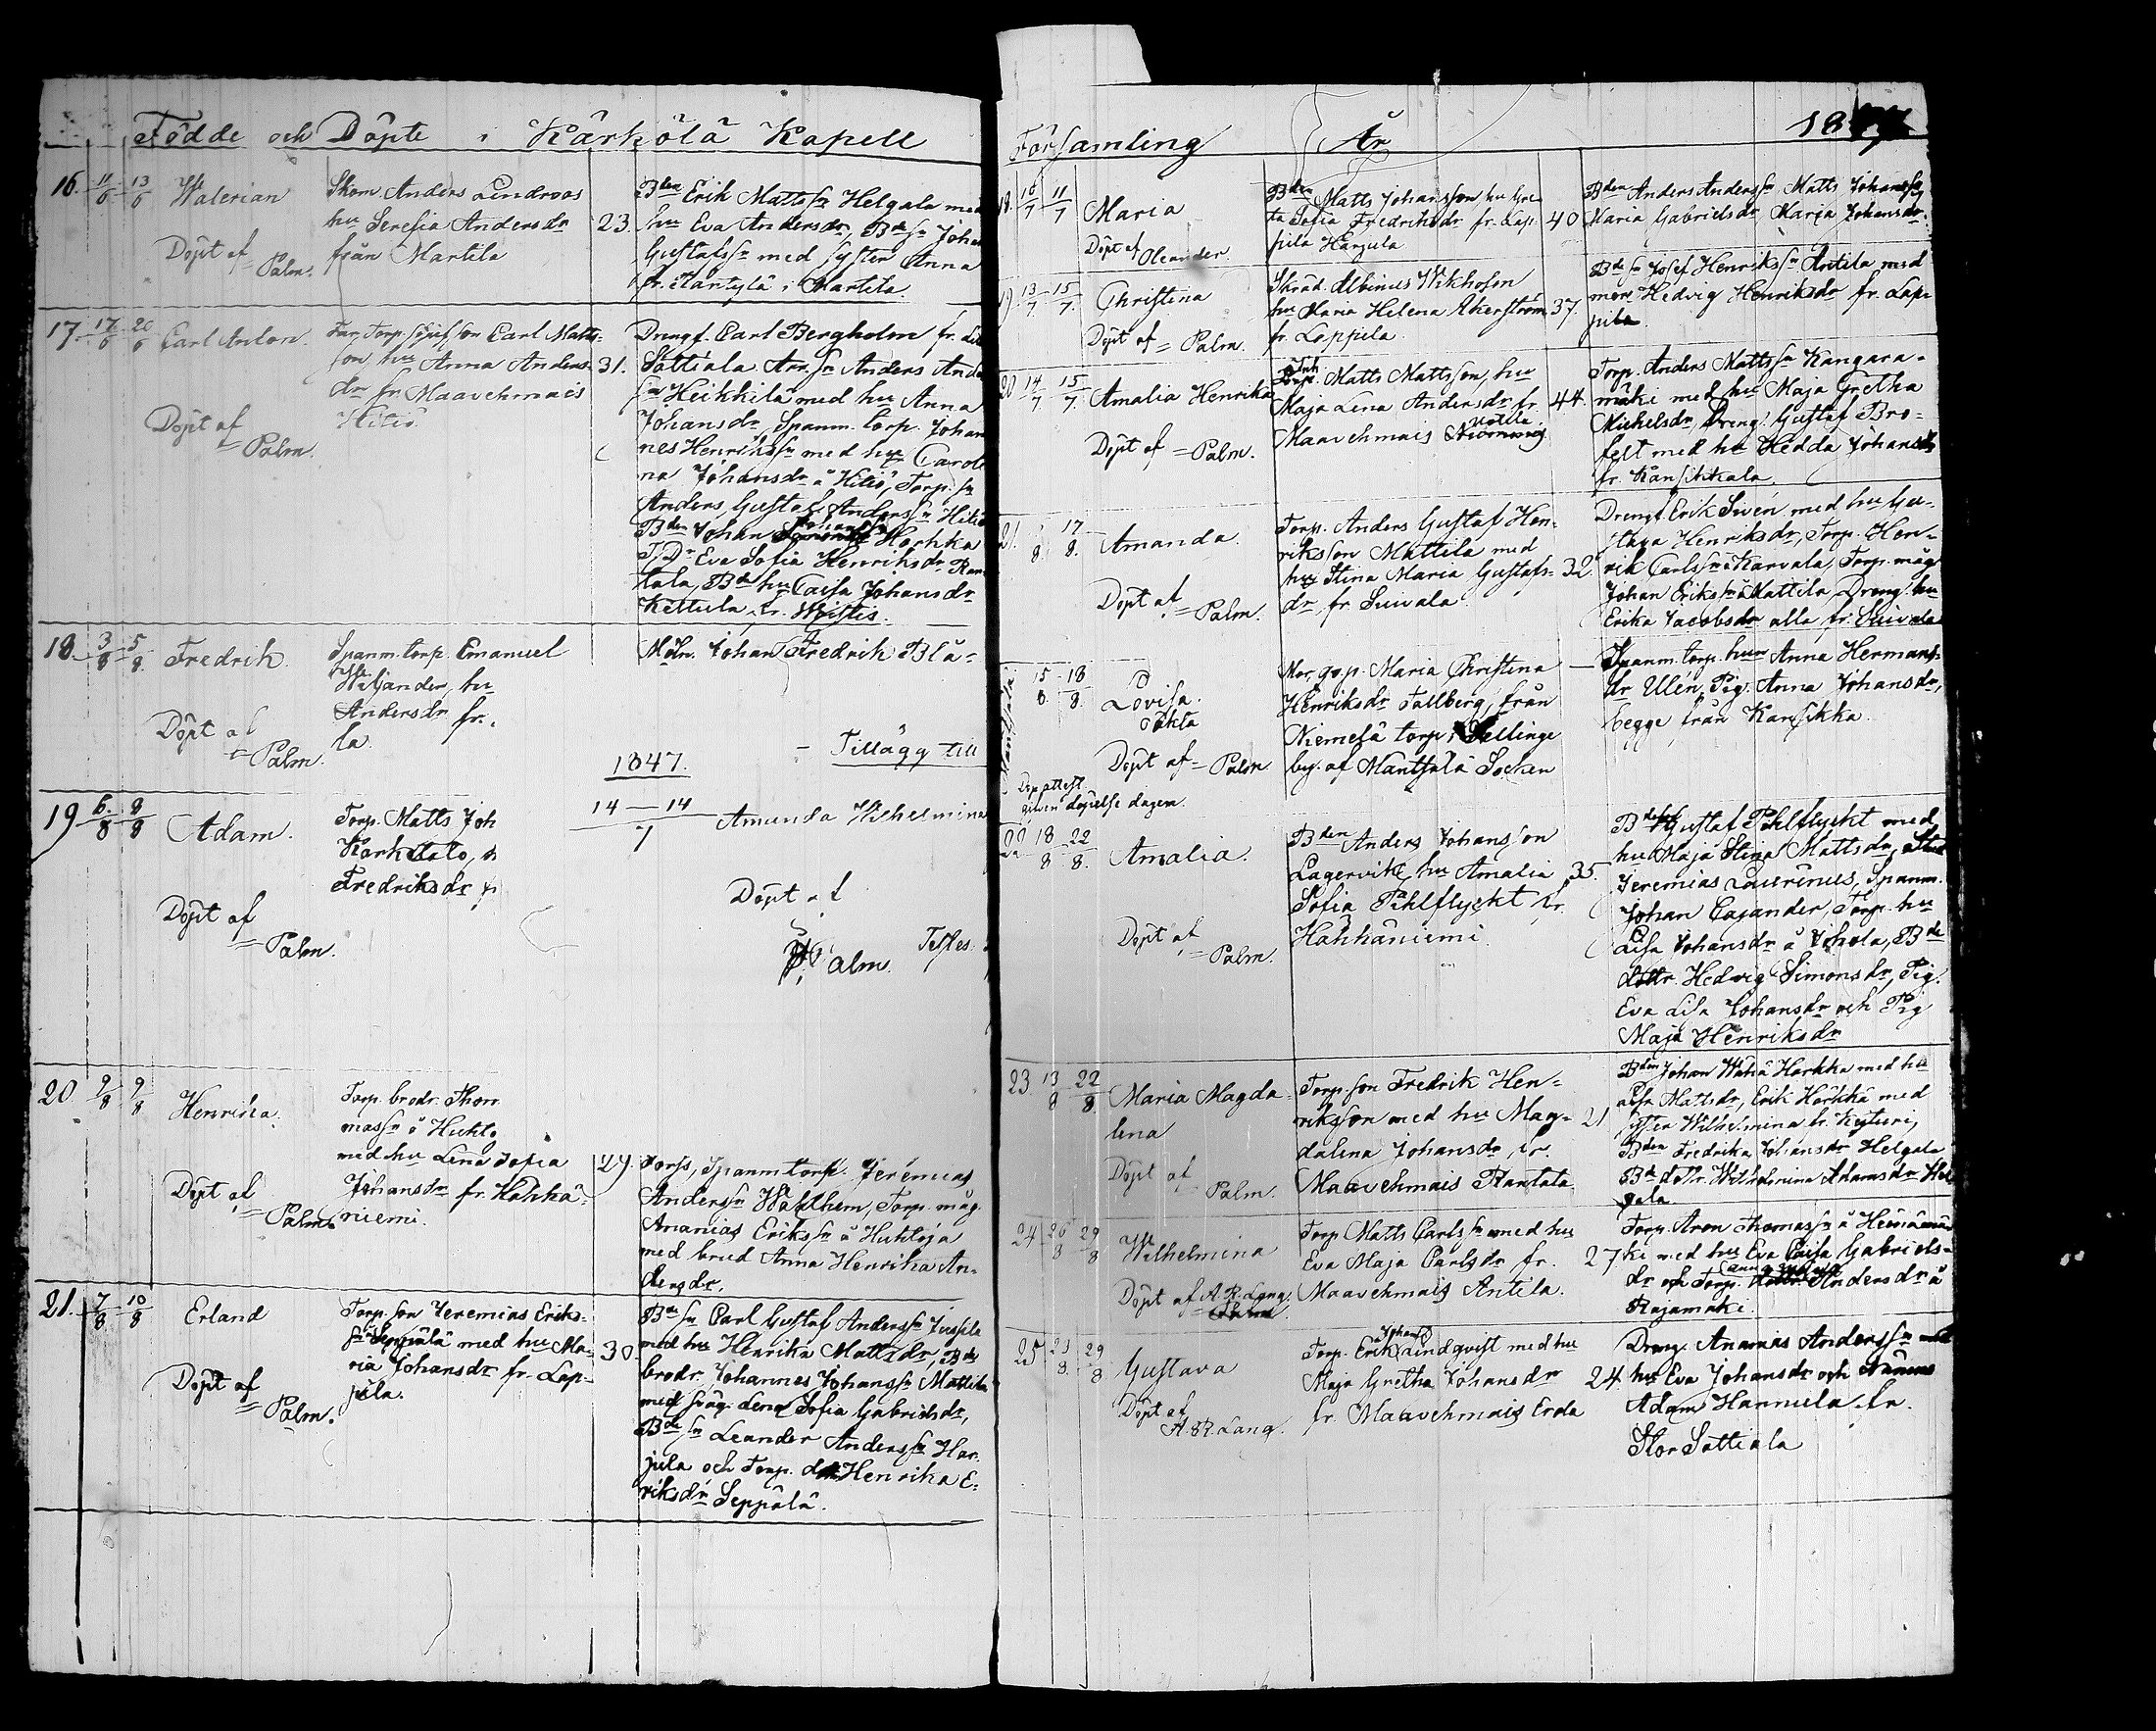 Födde och Döpte i Kärkölä Kapell
16. 11/6 13/6 Walerian
Döpt af
= Palm.
Skom. Anders Lindroos
hu Seresia Andersdr
från Martila
23.
Bden Erik Mattssn Helgala med
hu Eva Andersdr, Bdesn Johan
Gustafssn med syster Anna
fr. Mäntylä i Martila.
17. 17/6 20/6 Carl Anton.
Döpt af
= Palm.
son, hu Anna Anders-
dr fr Maavehmais
Hitiö.
31.
Drengf. Carl Bergholm fr.
Sattiala Arr. sn Anders
sn Heikkila med hu Anna
Johansdr, Spanm. torp. Johan
nes Henrikssn med hu Caroli
na Johansdr å Hitiö, Torp. sn
Anders Gustaf Anderssn Hitiö
Bden Johan Johanssn Horkka
T. Dr Eva Sofia Henriksdr Ran
tala, Bde hu Caisa Johansdr
Kettula fr. Wistis.
18. 3/8 5/8 Fredrik.
Döpt af
= Palm.
Spanm. torp. Emanuel
Wiljander, hu
Andersdr fr.
la.
Möln. Johan Fredrik Blå-
1847. - Tillägg till
14 — 14
7
Amanda Wilhelmina
Döpt af
Palm. Testes.
19 6/8 8/8 Adam.
Döpt af
= Palm.
Torp. Matts Joh
Karkulato, h
Fredriksdr fr
20 9/8 9/8 Henrica.
Döpt af
= Palm.
Torp. brodr. Thom
massn å Huhto
med hu Lena Sofia
Johansdr fr. Hähkä-
niemi.
29.
fors, Spanm torp. Jeremias
Anderssn Wahlhem, Torp. måg
Ananias Erikssn å Huhtoja
med brud Anna Henrika An-
dersdr.
21. 7/8 10/8 Erland
Döpt af
= Palm.
Torp. son Jeremias Eriks-
sn Seppälä med hu Ma-
ria Johansdr fr. Lap-
pila.
30.
Bde sn Carl Gustaf Anderssn Jussila
med hu Henrika Mattsdr, Bde
brodr. Johannes Johanssn Mattila
med svåg. Lena Sofia Gabrielsdr,
Bde sn Leander Anderssn Har-
jula och Torp. dr Henrika E-
riksdr Seppälä.
Församling År 18
18. 10/7 11/7 Maria
Döpt af Oleander.
Bden Matts Johansson, hu Gre-
ta Sofia Fredriksdr fr. Lap-
pila Harjula
40.
Bden Anders Anderssn Matts Johanssn
Maria Gabrielsdr Maria Johansdr.
19 13/7 15/7. Christina
Döpt af = Palm.
Skräd. Albinus Wikholm
hu Maria Helena Åkerström
fr. Lappila.
37.
Bde sn Josef Henrikssn Antila med
mor Hedvig Henriksdr fr. Lap-
pila.
20 14/7 15/7. Amalia Henrika
Döpt af = Palm.
Inh. Matts Mattsson, hu
Maja Lena Andersdr fr.
Maavehmais
44.
Torp. Anders Mattssn Kangara-
mäki med hu Maja Gretha
Michelsdr, Dreng. Gustaf Bro-
felt med hu Hedda Johansdr
fr. Kansikkala.
21. 8. 17/8. Amanda.
Döpt af
= Palm.
Torp. Anders Gustaf Hen-
riksson Mattila med
hu Stina Maria Gustafs-
dr, fr Suivala.
32.
Drengf. Erik Sivén med hu Gu-
stava Henriksdr, Torp. Hen-
rik Carlssn å Karvala, Torp. måg
Johan Erikssn å Mattila, Dreng. hu
Erika Jacobsdr alla fr. Suivala
Mäntsälä
15/8. 18/8. Lovisa.
Oäkta
Döpt af = Palm
Dop attest
given döpelse dagen.
Mor, gop. Maria Christina
Henriksdr Fallberg, från
Niemelä torp i Sellinge
by. af Mäntsälä Socken
—
Spanm. torp. hu Anna Hermans-
dr Ulén, Pig. Anna Johansdr,
begge från Karsikka.
22 18/8 22/8. Amalia.
Döpt af
= Palm.
Bden Anders Johansson
Lagervik, hu Amalia
Sofia Pihlflyckt fr.
Hähkäniemi.
35.
Bde Gustaf Pihlflyckt med
hu Maja Stina Mattsdr,
Jeremias Laurinus, Spanm.
Johan Cajander, Torp. hu
Lisa Johansdr å Johola, Bde
dottr. Hedvig Simonsdr, Pig.
Eva Lisa Johansdr och Pig
Maja Henriksdr
23 13/8 22/8 Maria Magda-
lena
Döpt af
Palm.
Torp. son Fredrik Hen-
riksson med hu Mag-
dalena Johansdr, fr.
Maavehmais Rantala
21
Bden Johan Wähä Horkka med hu
Caisa Mattsdr, Erik Horkkä med
syster Wilhelmina fr. Keituri,
Bden Fredrika Johansdr Helgala
Bde dottr. Wilhelmina Adamsdr Hel
gala.
24 26/8 29/8 Wilhelmina
Döpt af A. R. Lang.
Torp Matts Carlssn med hu
Eva Maja Carlsdr fr.
Maavehmais Antila.
27
Torp. Aron Thomassn å Heinämä
ki med hu Eva Caisa Gabriels-
dr och Torp. Andersdr å
Rajamäki.
25 23/8. 29/8 Gustava
Döpt af
A. R. Lang.
Torp. Erik Johans Lindqvist med hu
Maja Gretha Johansdr
fr. Maavehmais Erola
24.
Dreng. Ananias Anderssn med
hu Eva Johansdr och
Adam Hannula fr.
Stor Sattiala